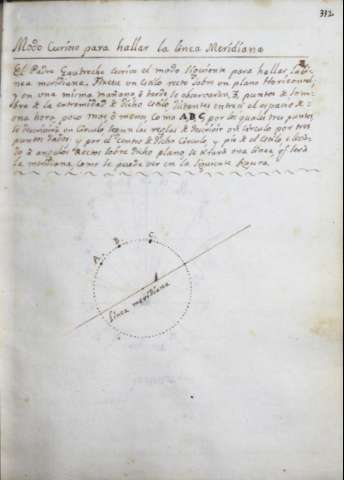 332
Modo Curioso para hallar la linea Meridiana
El Padre Gautreche curioso el modo siguiente para hallar la li-
nea meridiana, Fixese un estilo recto sobre un plano Horizontal
y en una misma mañana, o tarde se observaran 3 puntos de som-
bra de la extremidad de dicho estilo distantes entre si el espacio de
una hora poco mas, o menos, como ABC, por los quales tres puntos
se descrivira un Circulo segun las reglas de descrivir un circulo por tres
puntos dados y por el centro de dicho Circulo, y pie de el estilo
a angulos Rectos sobre dicho plano se tirará una linea esta será
la meridiana, como se puede ver en la siguiente figura
A. B. C.
Linea meridiana